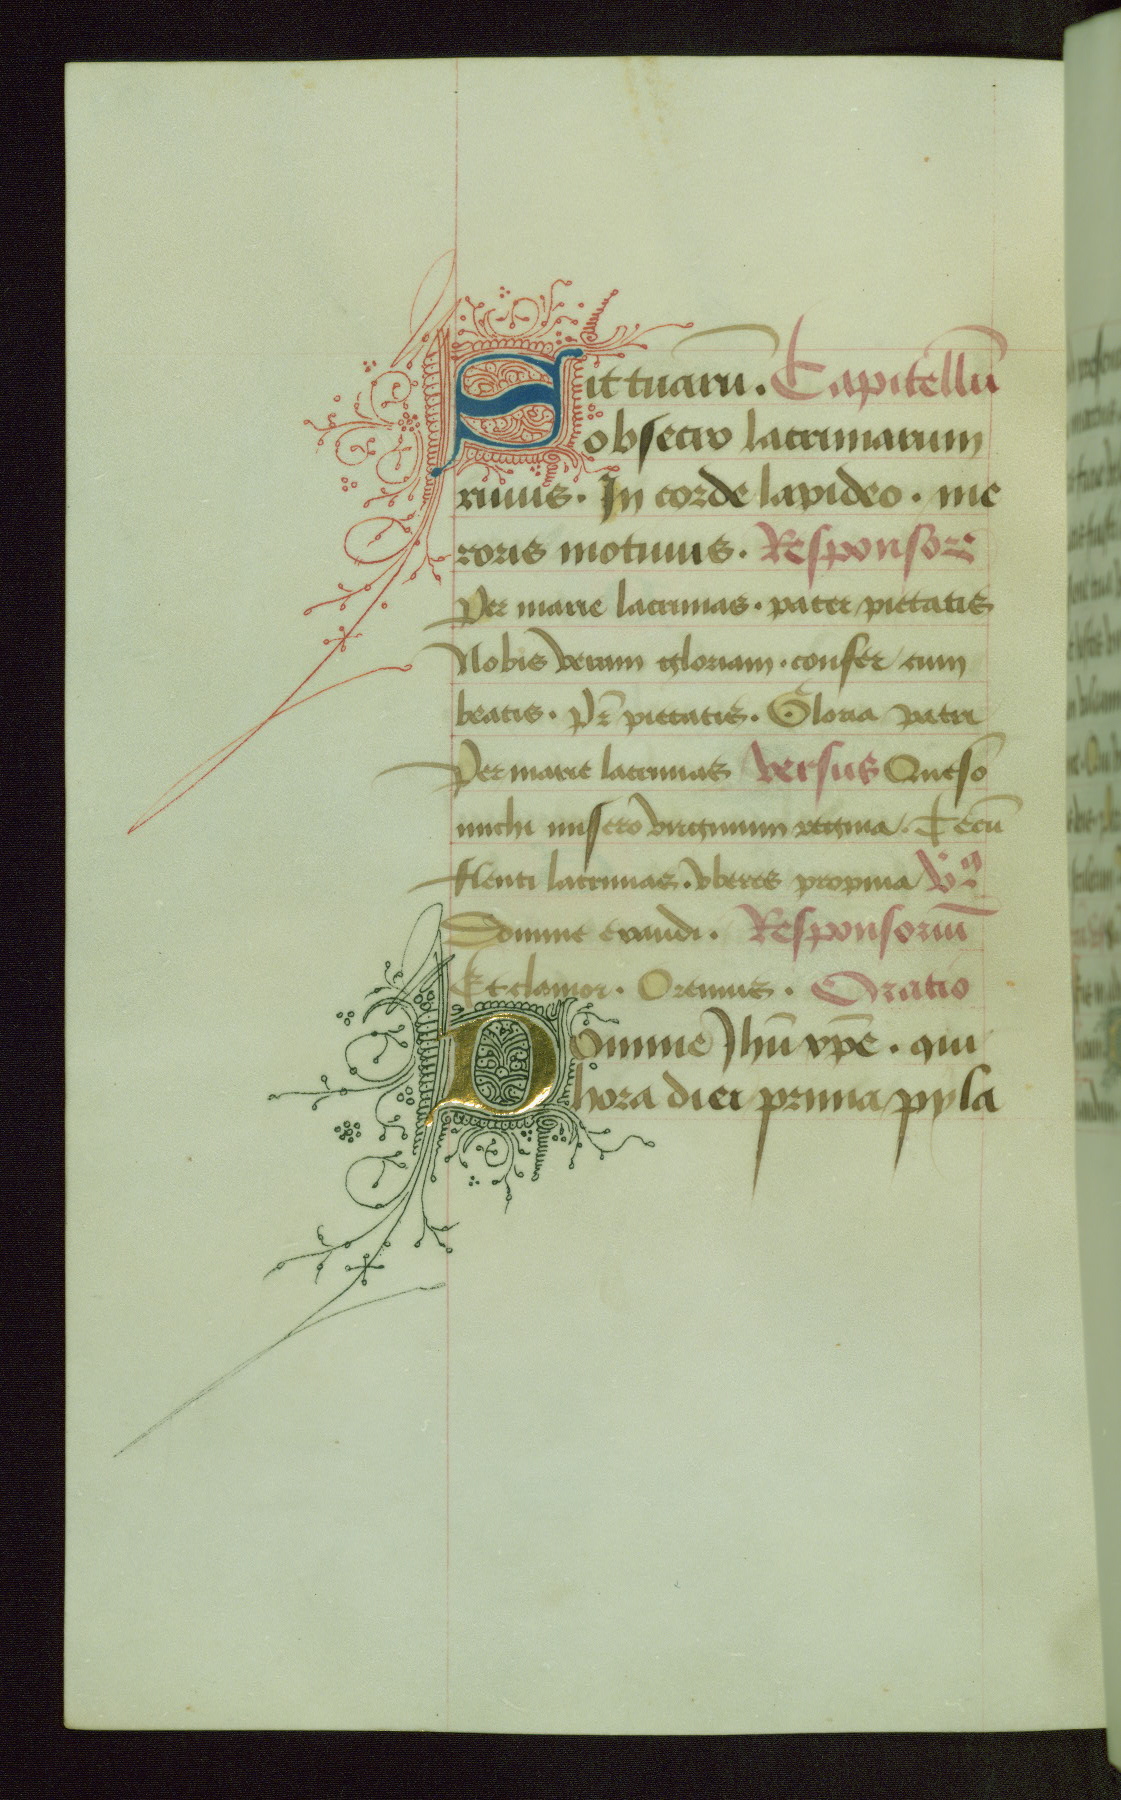 Sit tuarū. Capitellū
obsecro lacrimarum
riuus. In corde lapideo. me
roris motiuus. Responsore
Per marie lacrimas. pater pietatis
Nobis veram gloriam. confer cum
beatis. Pr̄ pietatis. Gloria patri
Per marie lacrimas versus Queso
michi misero virginum regina. Tecū
flenti lacrimas. vberes propina
Domine exaudi. Responsoriū
Et clamor. Oremus. Oratio
Domine Jhū xp̄e. qui
hora diei prima pyla